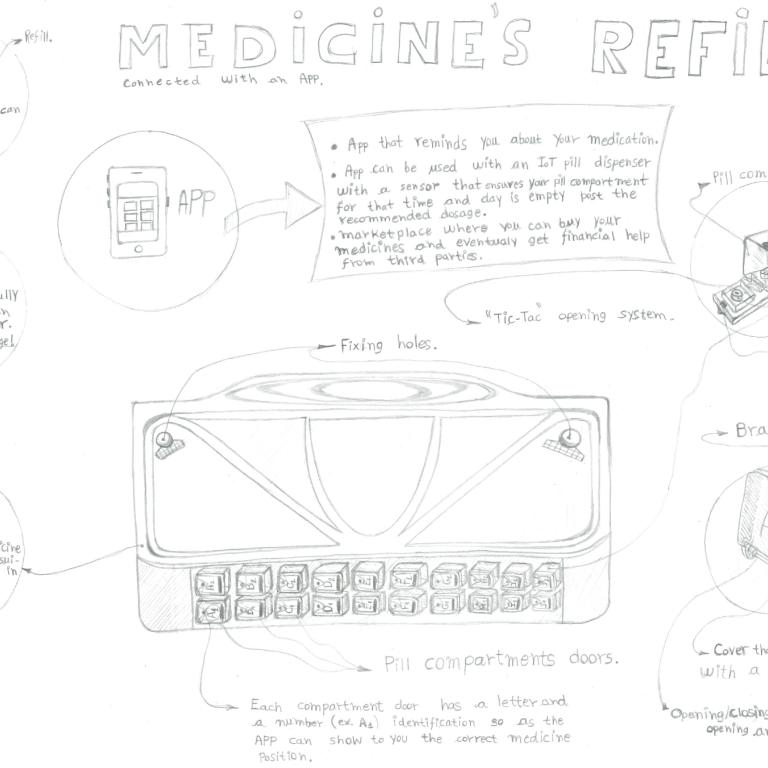 MEDICINE'S REFI
connected with an APP.
Refill.
can
APP
• App that reminds you about your medication.
• App can be used with an IoT pill dispenser
with a sensor that ensures your pill compartment
for that time and day is empty post the
recommended dosage.
• marketplace where you can buy your
medicines and eventualy get financial help
from third parties.
Pill com
"Tic-Tac" opening system.
Fixing holes.
Bra
Pill compartments doors.
Each compartment door has a letter and
a number (ex. A1) identification so as the
APP can show to you the correct medicine
Position.
Cover th
with a
Opening/closing
opening an